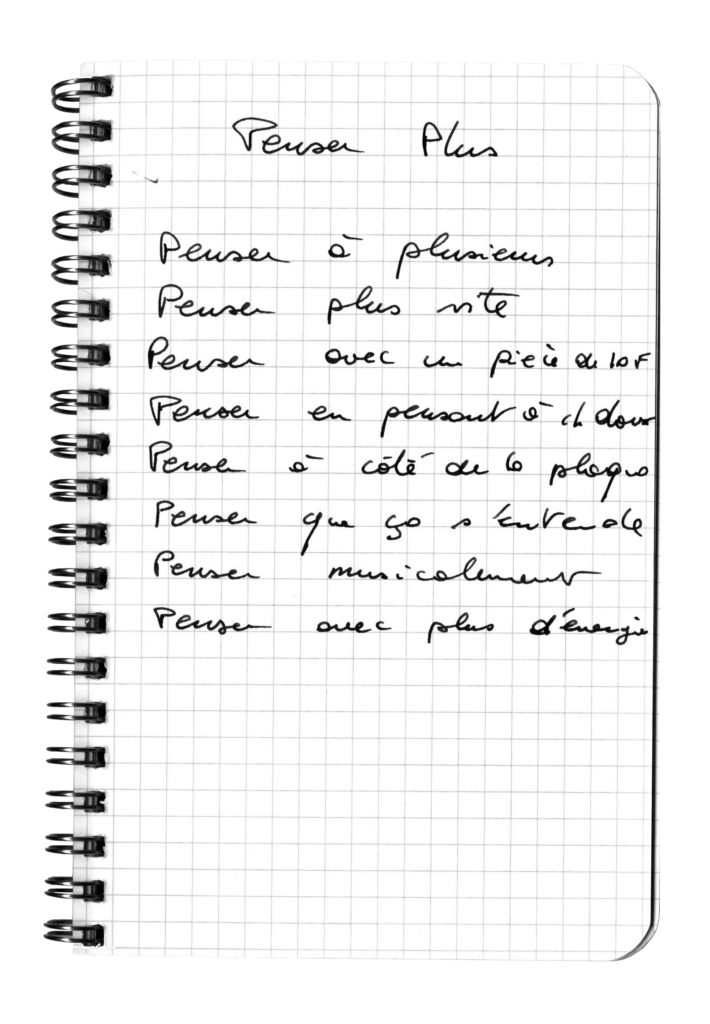 Penser Plus
Penser à plusieurs
Penser plus vite
Penser avec un pièce de 10 F
Penser en pensant à
Penser à côté de la plaque
Penser que ça s'entende
Penser musicalement
Penser avec plus d'énergie